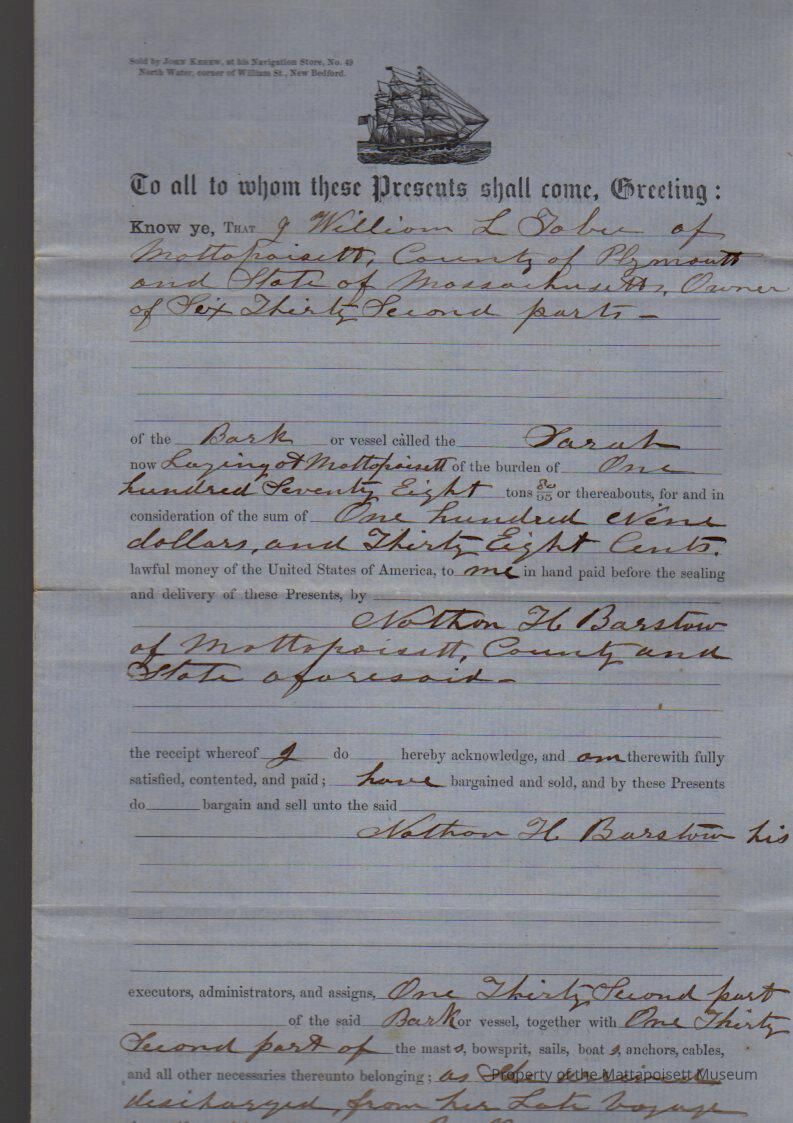 Sold by JOHN KEHEW, at his Navigation Store, No. 49
North Water, corner of William St., New Bedford.
To all to whom these Presents shall come, Greeting:
Know ye, THAT I William L Taber of
Mattapoisett, County of Plymouth
and State of Massachusetts, Owner
of Six Thirty Second parts -
of the Bark or vessel called the Sarah
now Laying at Mattapoisett of the burden of One
hundred Seventy Eight tons 80/95 or thereabouts, for and in
consideration of the sum of One hundred Nine
dollars, and Thirty Eight Cents.
lawful money of the United States of America, to me in hand paid before the sealing
and delivery of these Presents, by
Nathan H Barstow
of Mattapoisett, County and
State aforesaid -
the receipt whereof I do hereby acknowledge, and am therewith fully
satisfied, contented, and paid; have bargained and sold, and by these Presents
do bargain and sell unto the said
Nathan H Barstow his
executors, administrators, and assigns, One Thirty Second part
of the said Bark or vessel, together with One Thirty
Second part of the masts, bowsprit, sails, boats, anchors, cables,
and all other necessaries thereunto belonging; as She
Property of the Mattapoisett Museum
discharged, from her Late Voyage